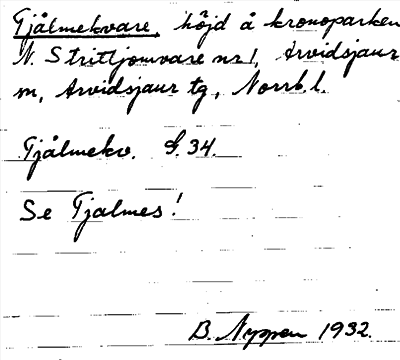 Tjålmekvare, höjd å kronoparken
N. Strittjomvare nr 1, Arvidsjaur
m, Arvidsjaur tg, Norrb. l.
Tjålmekv. G. 34.
Se Tjalmes!
B. Nyppen 1932.